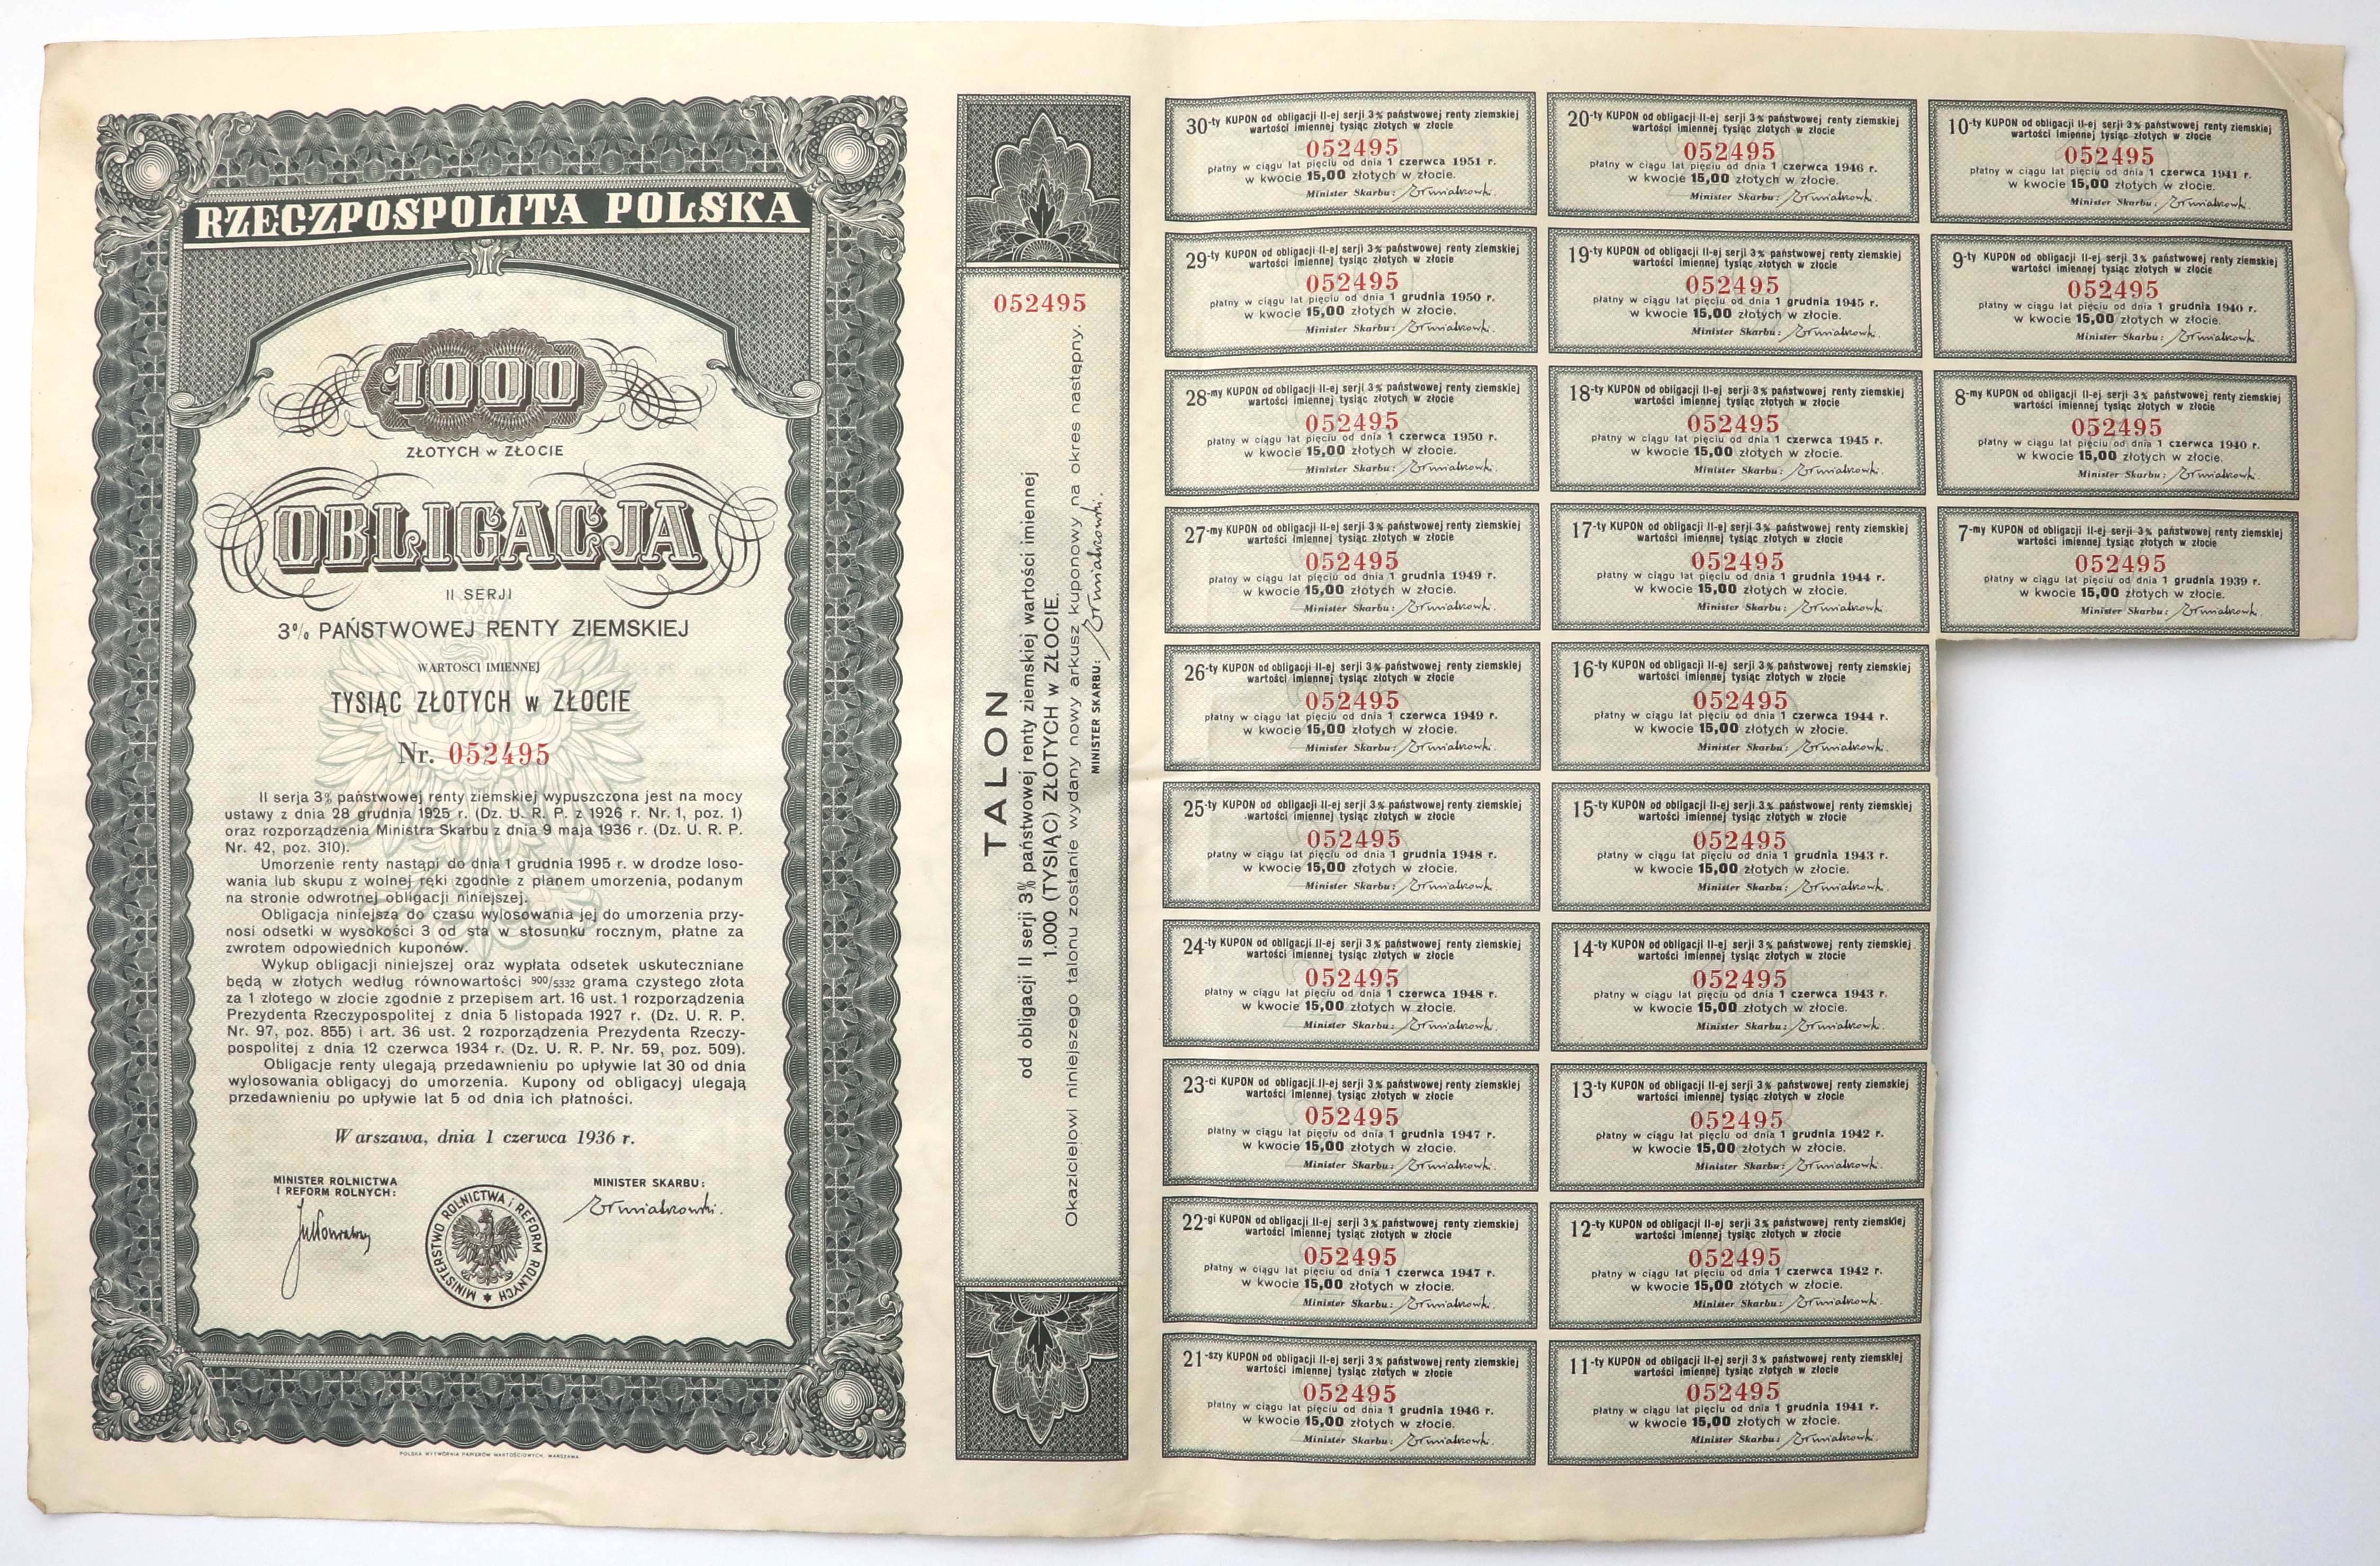 RZECZPOSPOLITA POLSKA
1000
ZŁOTYCH w ZŁOCIE
OBLIGACJA
II SERJI
3% PAŃSTWOWEJ RENTY ZIEMSKIEJ
WARTOSCI IMIENNEJ
TYSIĄC ZŁOTYCH w ZŁOCIE
Nr. 052495
II serja 3% państwowej renty ziemskiej wypuszczona jest na mocy
ustawy z dnia 28 grudnia 1925 r. (Dz. U. R. P. z 1926 r. Nr. 1, poz. 1)
oraz rozporządzenia Ministra Skarbu z dnia 9 maja 1936 r. (Dz. U. R. P.
Nr. 42, poz. 310).
Umorzenie renty nastąpi do dnia 1 grudnia 1995 r. w drodze loso-
wania lub skupu z wolnej ręki zgodnie z planem umorzenia, podanym
na stronie odwrotnej obligacji niniejszej.
Obligacja niniejsza do czasu wylosowania jej do umorzenia przy-
nosi odsetki w wysokości 3 od sta w stosunku rocznym, płatne za
zwrotem odpowiednich kuponów.
Wykup obligacji niniejszej oraz wypłata odsetek uskuteczniane
będą w złotych według równowartości 900/5332 grama czystego złota
za 1 złotego w złocie zgodnie z przepisem art. 16 ust. 1 rozporządzenia
Prezydenta Rzeczypospolitej z dnia 5 listopada 1927 r. (Dz. U. R. P.
Nr. 97, poz. 855) i art. 36 ust. 2 rozporządzenia Prezydenta Rzeczy-
pospolitej z dnia 12 czerwca 1934 r. (Dz. U. R. P. Nr. 59, poz. 509).
Obligacje renty ulegają przedawnieniu po upływie lat 30 od dnia
wylosowania obligacyj do umorzenia. Kupony od obligacyj ulegają
przedawnieniu po upływie lat 5 od dnia ich płatności.
Warszawa, dnia 1 czerwca 1936 r.
MINISTER ROLNICTWA
I REFORM ROLNYCH:
MINISTER SKARBU:
MINISTERSTWO ROLNICTWA i REFORM ROLNYCH
POLSKA WYTWÓRNIA PAPIERÓW WARTOŚCIOWYCH, WARSZAWA
052495
TALON
od obligacji II serji 3% państwowej renty ziemskiej wartości imiennej
1.000 (TYSIĄC) ZŁOTYCH w ZŁOCIE.
Okazicielowi niniejszego talonu zostanie wydany nowy arkusz kuponowy na okres następny.
MINISTER SKARBU:
30-ty KUPON od obligacji II-ej serji 3% państwowej renty ziemskiej
wartości imiennej tysiąc złotych w złocie
052495
płatny w ciągu lat pięciu od dnia 1 czerwca 1951 r.
w kwocie 15,00 złotych w złocie.
Minister Skarbu:
29-ty KUPON od obligacji II-ej serji 3% państwowej renty ziemskiej
wartości imiennej tysiąc złotych w złocie
052495
płatny w ciągu lat pięciu od dnia 1 grudnia 1950 r.
w kwocie 15,00 złotych w złocie.
Minister Skarbu:
28-my KUPON od obligacji II-ej serji 3% państwowej renty ziemskiej
wartości imiennej tysiąc złotych w złocie
052495
płatny w ciągu lat pięciu od dnia 1 czerwca 1950 r.
w kwocie 15,00 złotych w złocie.
Minister Skarbu:
27-my KUPON od obligacji II-ej serji 3% państwowej renty ziemskiej
wartości imiennej tysiąc złotych w złocie
052495
płatny w ciągu lat pięciu od dnia 1 grudnia 1949 r.
w kwocie 15,00 złotych w złocie.
Minister Skarbu:
26-ty KUPON od obligacji II-ej serji 3% państwowej renty ziemskiej
wartości imiennej tysiąc złotych w złocie
052495
płatny w ciągu lat pięciu od dnia 1 czerwca 1949 r.
w kwocie 15,00 złotych w złocie.
Minister Skarbu:
25-ty KUPON od obligacji II-ej serji 3% państwowej renty ziemskiej
wartości imiennej tysiąc złotych w złocie
052495
płatny w ciągu lat pięciu od dnia 1 grudnia 1948 r.
w kwocie 15,00 złotych w złocie.
Minister Skarbu:
24-ty KUPON od obligacji II-ej serji 3% państwowej renty ziemskiej
wartości imiennej tysiąc złotych w złocie
052495
płatny w ciągu lat pięciu od dnia 1 czerwca 1948 r.
w kwocie 15,00 złotych w złocie.
Minister Skarbu:
23-ci KUPON od obligacji II-ej serji 3% państwowej renty ziemskiej
wartości imiennej tysiąc złotych w złocie
052495
płatny w ciągu lat pięciu od dnia 1 grudnia 1947 r.
w kwocie 15,00 złotych w złocie.
Minister Skarbu:
22-gi KUPON od obligacji II-ej serji 3% państwowej renty ziemskiej
wartości imiennej tysiąc złotych w złocie
052495
płatny w ciągu lat pięciu od dnia 1 czerwca 1947 r.
w kwocie 15,00 złotych w złocie.
Minister Skarbu:
21-szy KUPON od obligacji II-ej serji 3% państwowej renty ziemskiej
wartości imiennej tysiąc złotych w złocie
052495
płatny w ciągu lat pięciu od dnia 1 grudnia 1946 r.
w kwocie 15,00 złotych w złocie.
Minister Skarbu:
20-ty KUPON od obligacji II-ej serji 3% państwowej renty ziemskiej
wartości imiennej tysiąc złotych w złocie
052495
płatny w ciągu lat pięciu od dnia 1 czerwca 1946 r.
w kwocie 15,00 złotych w złocie.
Minister Skarbu:
19-ty KUPON od obligacji II-ej serji 3% państwowej renty ziemskiej
wartości imiennej tysiąc złotych w złocie
052495
płatny w ciągu lat pięciu od dnia 1 grudnia 1945 r.
w kwocie 15,00 złotych w złocie.
Minister Skarbu:
18-ty KUPON od obligacji II-ej serji 3% państwowej renty ziemskiej
wartości imiennej tysiąc złotych w złocie
052495
płatny w ciągu lat pięciu od dnia 1 czerwca 1945 r.
w kwocie 15,00 złotych w złocie.
Minister Skarbu:
17-ty KUPON od obligacji II-ej serji 3% państwowej renty ziemskiej
wartości imiennej tysiąc złotych w złocie
052495
płatny w ciągu lat pięciu od dnia 1 grudnia 1944 r.
w kwocie 15,00 złotych w złocie.
Minister Skarbu:
16-ty KUPON od obligacji II-ej serji 3% państwowej renty ziemskiej
wartości imiennej tysiąc złotych w złocie
052495
płatny w ciągu lat pięciu od dnia 1 czerwca 1944 r.
w kwocie 15,00 złotych w złocie.
Minister Skarbu:
15-ty KUPON od obligacji II-ej serji 3% państwowej renty ziemskiej
wartości imiennej tysiąc złotych w złocie
052495
płatny w ciągu lat pięciu od dnia 1 grudnia 1943 r.
w kwocie 15,00 złotych w złocie.
Minister Skarbu:
14-ty KUPON od obligacji II-ej serji 3% państwowej renty ziemskiej
wartości imiennej tysiąc złotych w złocie
052495
płatny w ciągu lat pięciu od dnia 1 czerwca 1943 r.
w kwocie 15,00 złotych w złocie.
Minister Skarbu:
13-ty KUPON od obligacji II-ej serji 3% państwowej renty ziemskiej
wartości imiennej tysiąc złotych w złocie
052495
płatny w ciągu lat pięciu od dnia 1 grudnia 1942 r.
w kwocie 15,00 złotych w złocie.
Minister Skarbu:
12-ty KUPON od obligacji II-ej serji 3% państwowej renty ziemskiej
wartości imiennej tysiąc złotych w złocie
052495
płatny w ciągu lat pięciu od dnia 1 czerwca 1942 r.
w kwocie 15,00 złotych w złocie.
Minister Skarbu:
11-ty KUPON od obligacji II-ej serji 3% państwowej renty ziemskiej
wartości imiennej tysiąc złotych w złocie
052495
płatny w ciągu lat pięciu od dnia 1 grudnia 1941 r.
w kwocie 15,00 złotych w złocie.
Minister Skarbu:
10-ty KUPON od obligacji II-ej serji 3% państwowej renty ziemskiej
wartości imiennej tysiąc złotych w złocie
052495
płatny w ciągu lat pięciu od dnia 1 czerwca 1941 r.
w kwocie 15,00 złotych w złocie.
Minister Skarbu:
9-ty KUPON od obligacji II-ej serji 3% państwowej renty ziemskiej
wartości imiennej tysiąc złotych w złocie
052495
płatny w ciągu lat pięciu od dnia 1 grudnia 1940 r.
w kwocie 15,00 złotych w złocie.
Minister Skarbu:
8-my KUPON od obligacji II-ej serji 3% państwowej renty ziemskiej
wartości imiennej tysiąc złotych w złocie
052495
płatny w ciągu lat pięciu od dnia 1 czerwca 1940 r.
w kwocie 15,00 złotych w złocie.
Minister Skarbu:
7-my KUPON od obligacji II-ej serji 3% państwowej renty ziemskiej
wartości imiennej tysiąc złotych w złocie
052495
płatny w ciągu lat pięciu od dnia 1 grudnia 1939 r.
w kwocie 15,00 złotych w złocie.
Minister Skarbu: